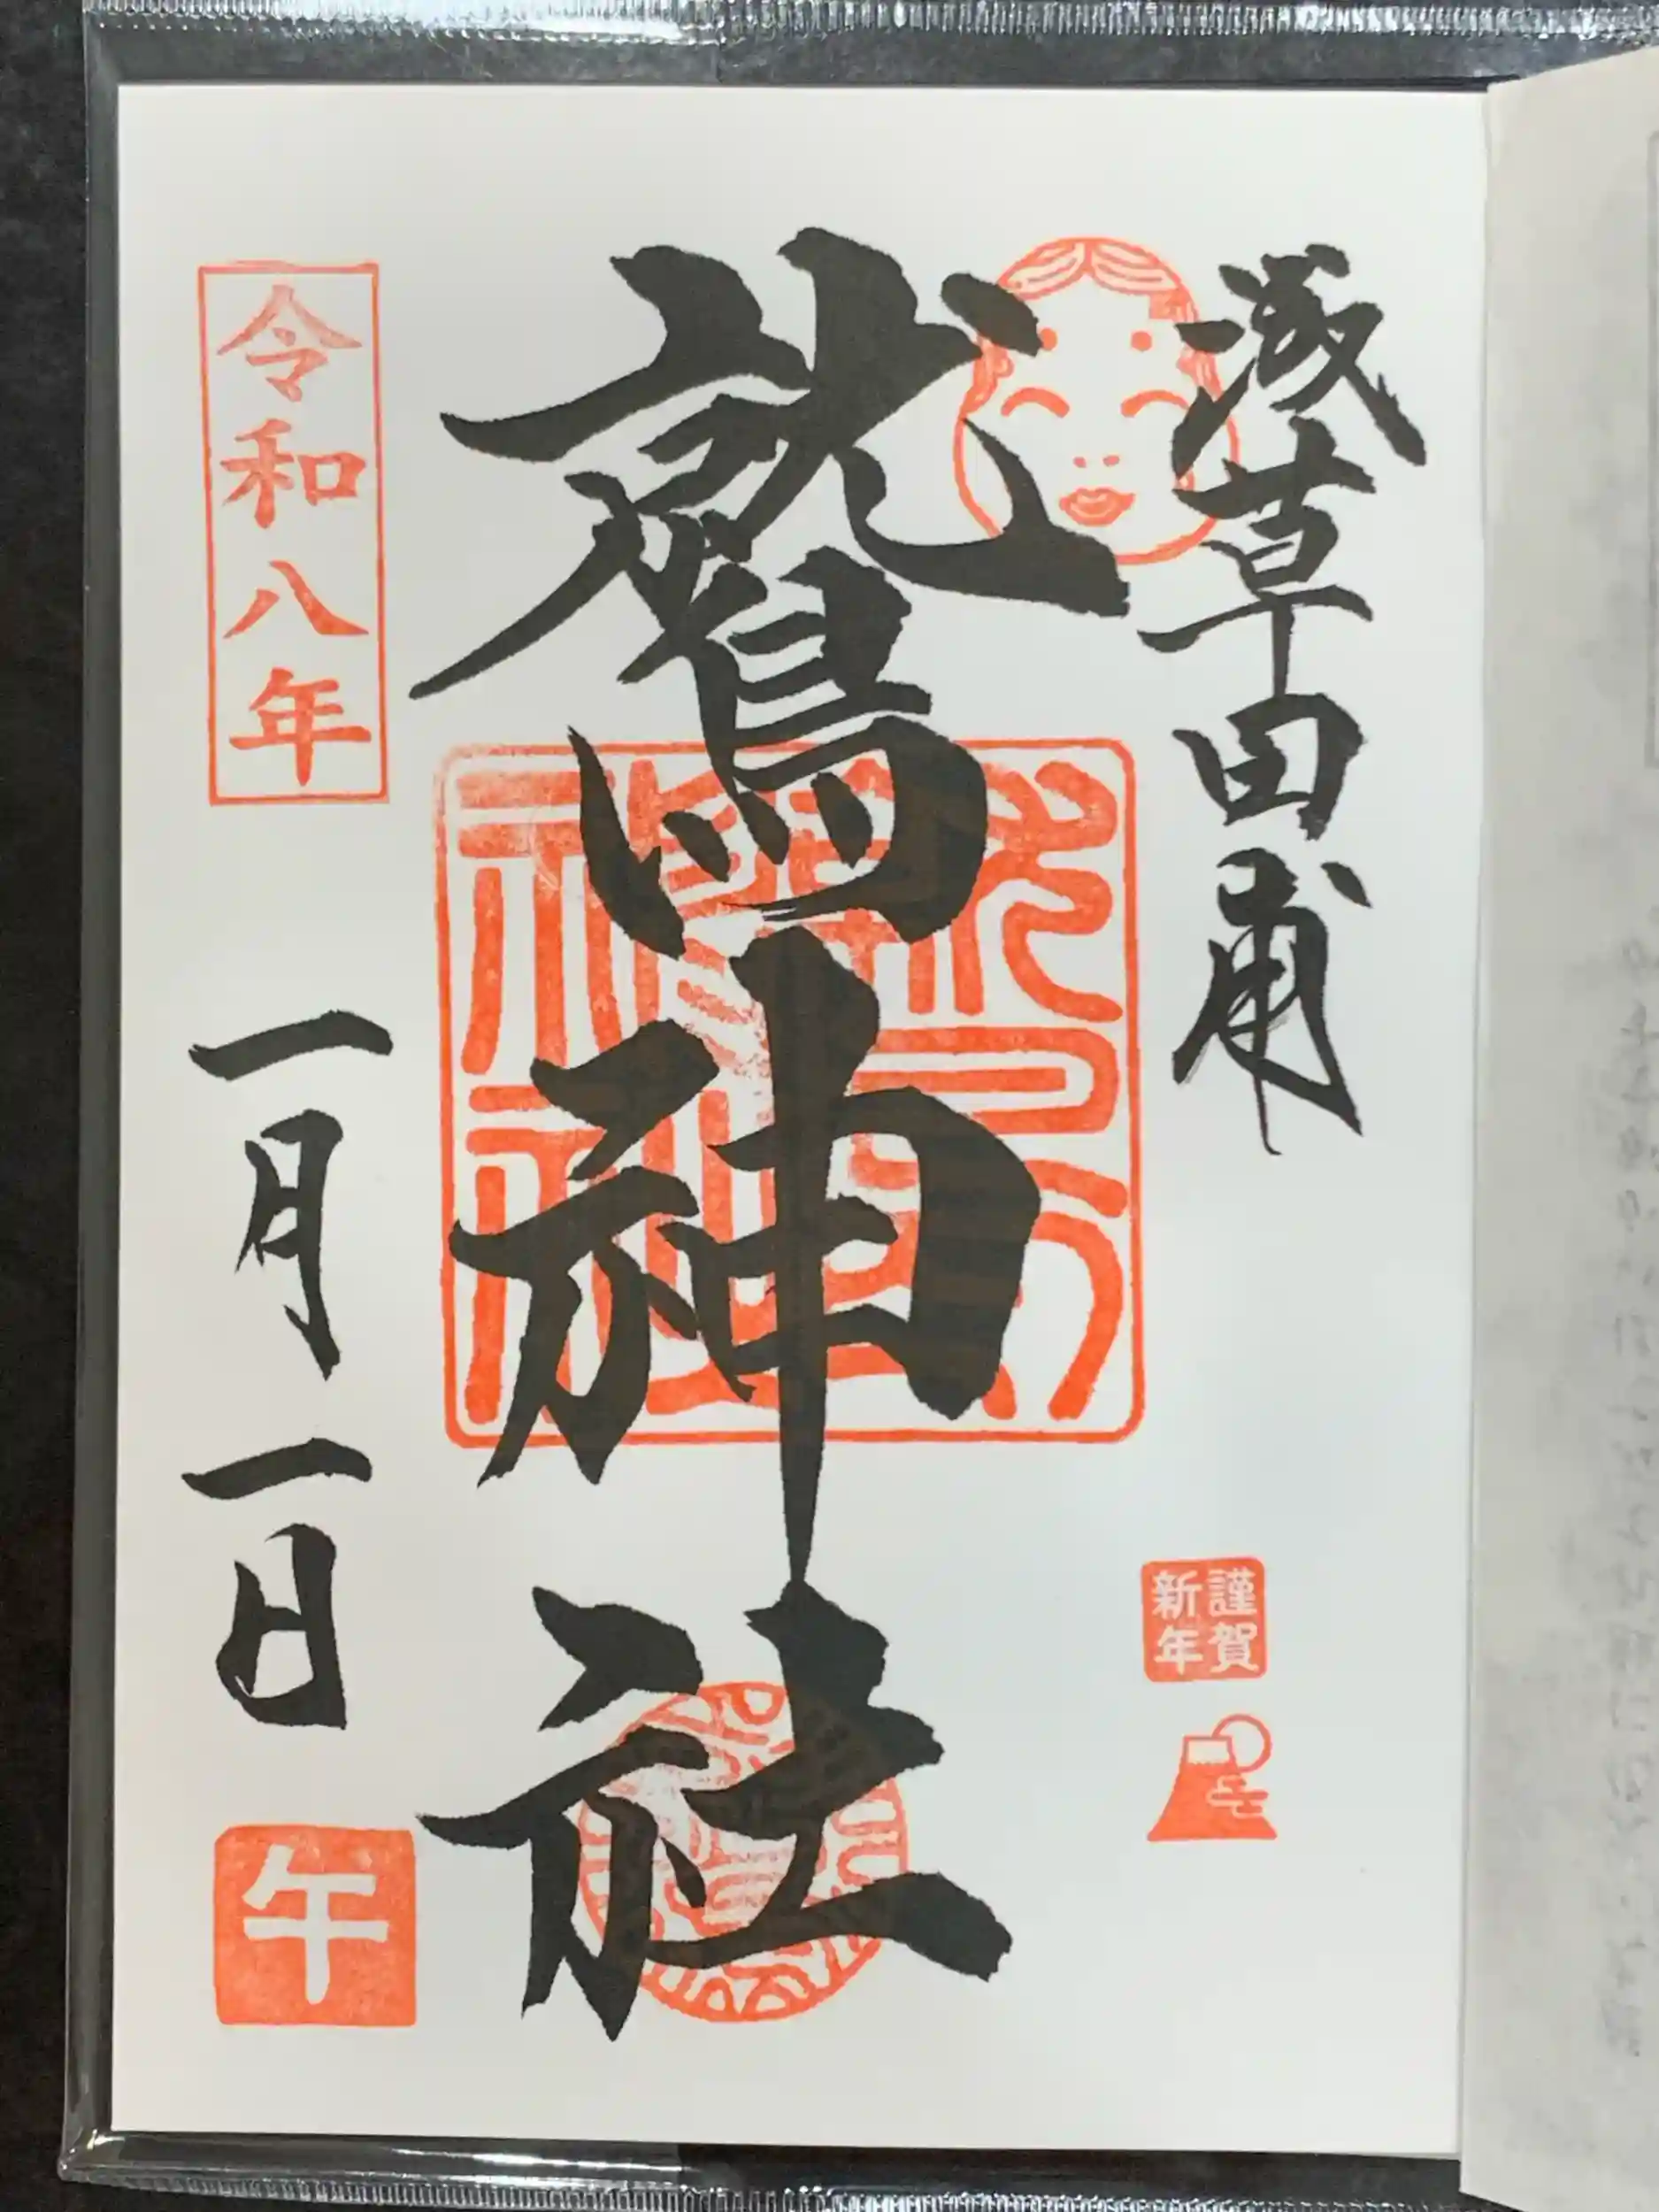 浅草田甫
鷲神社
令和八年
一月一日
謹賀
新年
午